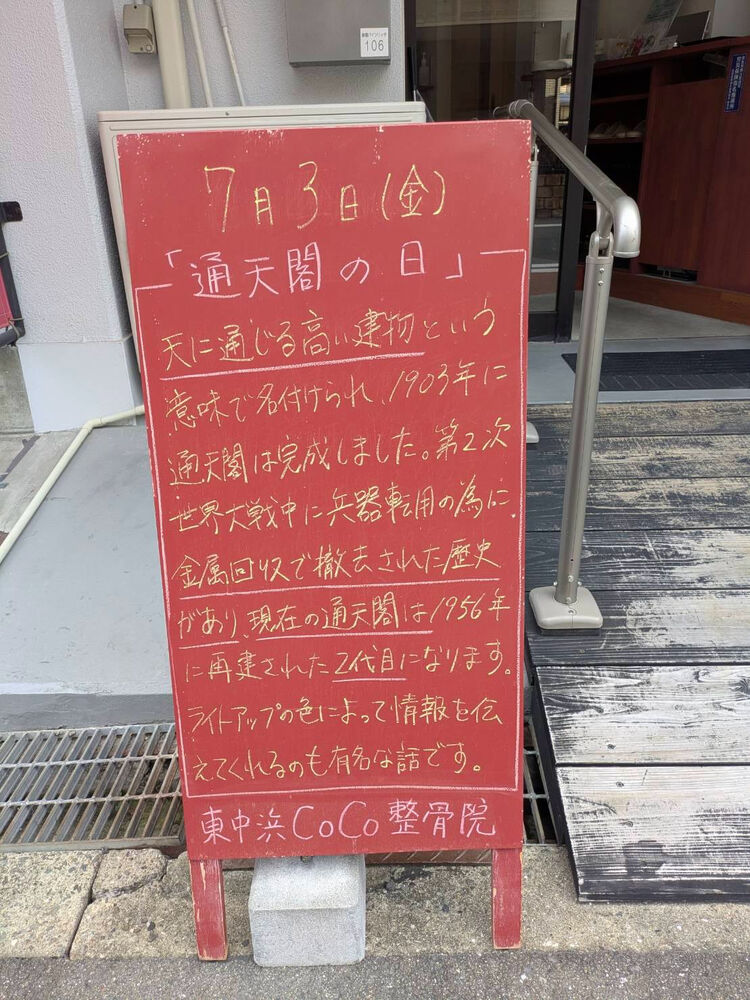 106
7月3日(金)
「通天閣の日」
天に通じる高い建物という
意味で名付けられ、1903年に
通天閣は完成しました。第2次
世界大戦中に兵器転用の為に
金属回収で撤去された歴史
があり、現在の通天閣は1956年
に再建された2代目になります。
ライトアップの色によって情報を伝
えてくれるのも有名な話です。
東中浜CoCo整骨院